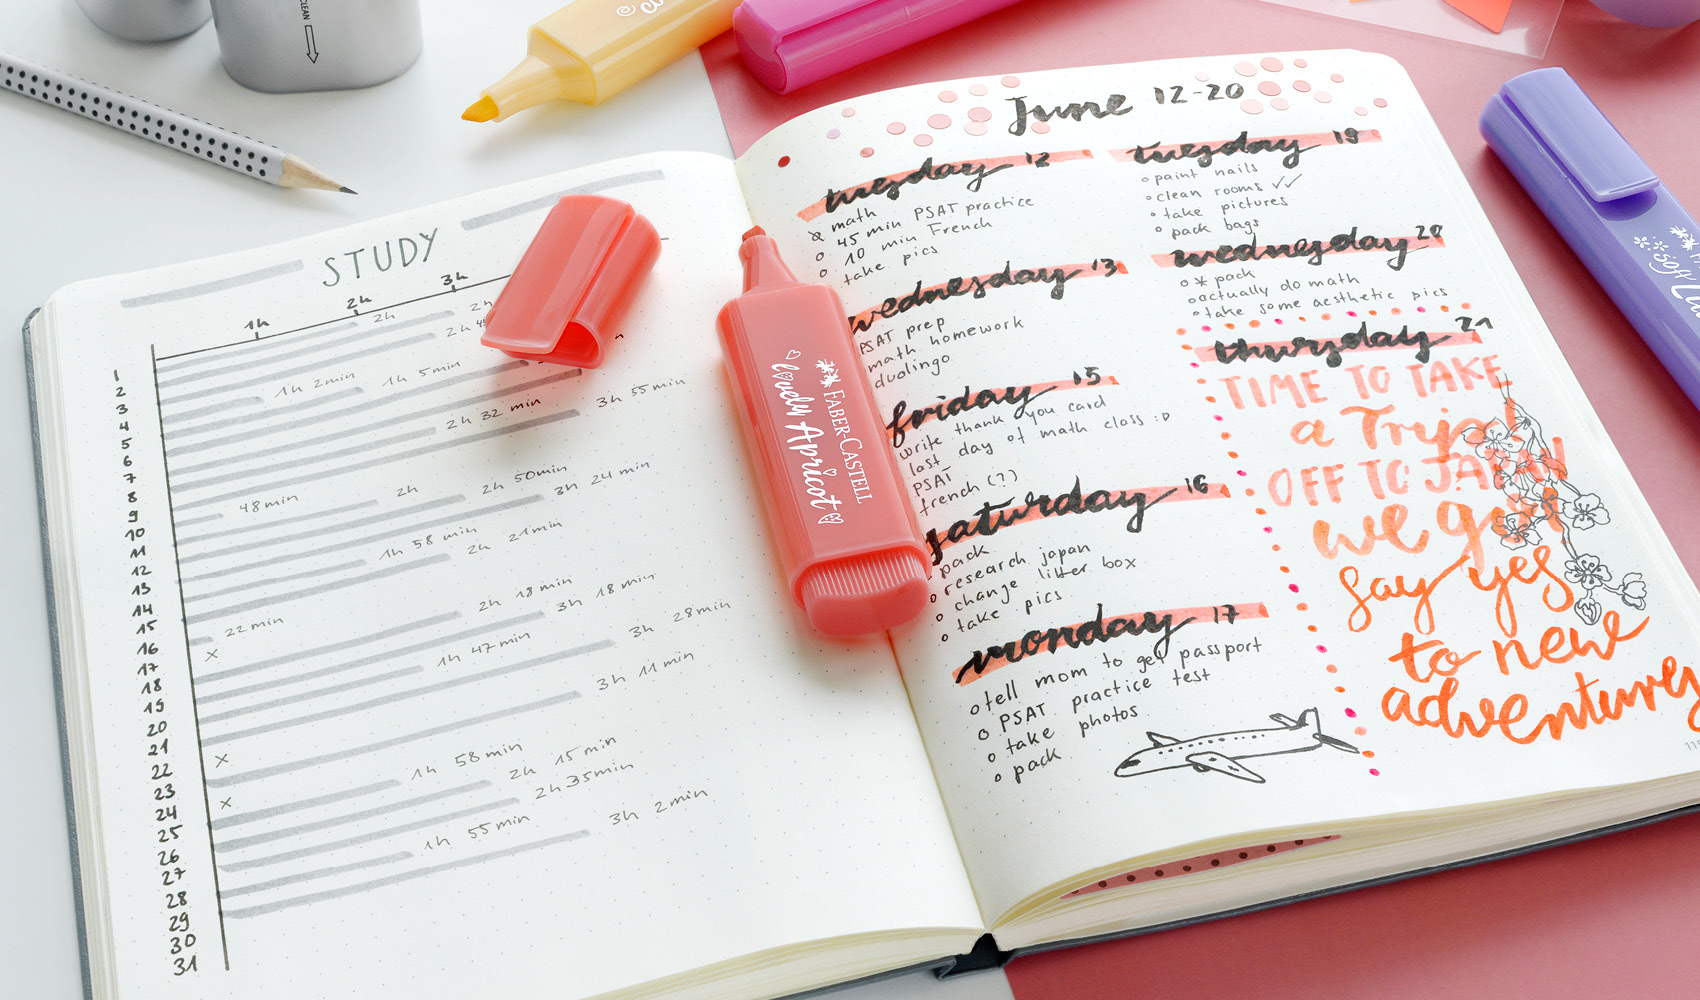 CLEAN
STUDY
1h
2h
3h
2h
1h 2min
1h 5min
2h 32 min
3h 55min
48min
2h
2h 50min
3h 24 min
1h 58 min
2h 21min
22min
2h 18min
3h 18 min
1h 47min
3h 28min
3h 11min
1h 58min
2h 15 min
2h 35min
1h 55min
3h 2min
1
2
3
4
5
6
7
8
9
10
11
12
13
14
15
16
17
18
19
20
21
22
23
24
25
26
27
28
29
30
31
FABER-CASTELL
Lovely Apricot
June 12-20
tuesday 12
math
45 min PSAT practice
10 min French
take pics
wednesday 13
PSAT prep
math homework
duolingo
friday 15
write thank you card
last day of math class :D
PSAT
french (?)
saturday 16
pack
research japan
change litter box
take pics
monday 17
tell mom to get passport
PSAT practice test
take photos
pack
tuesday 19
paint nails
clean rooms ✓✓
take pictures
pack bags
wednesday 20
* pack
actually do math
take some aesthetic pics
thursday 21
TIME TO TAKE
a Trip
OFF TO JAPAN
we go
say yes
to new
adventures